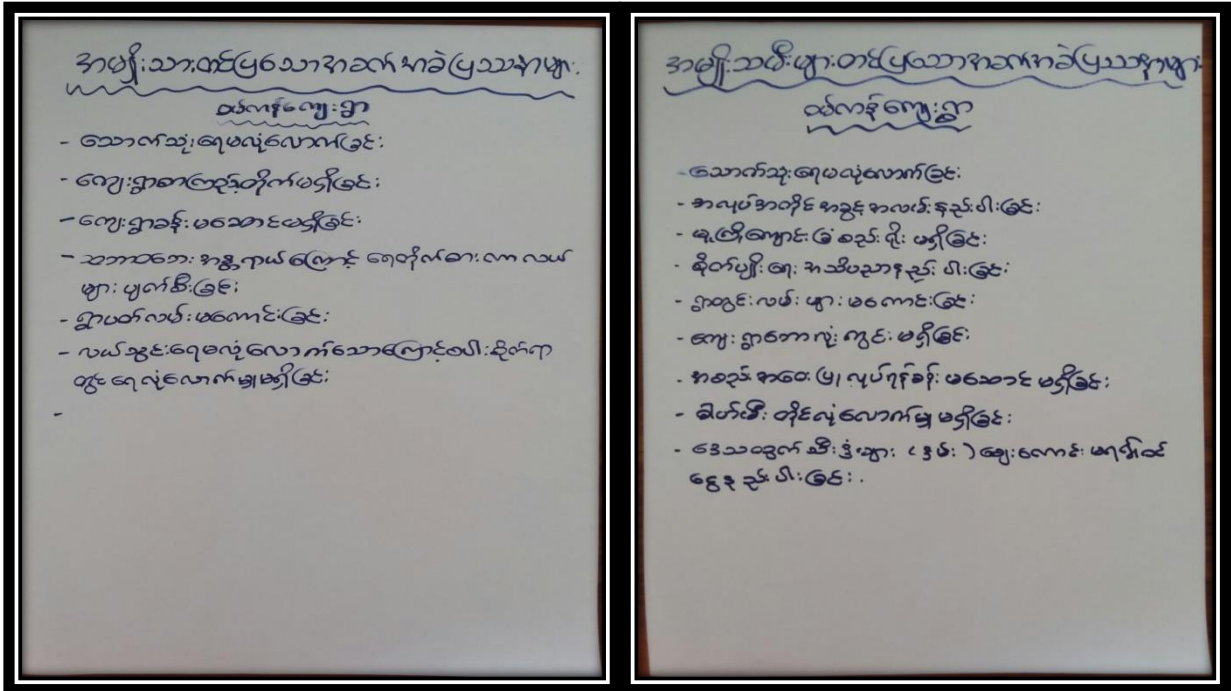 အမျိုးသားတင်ပြသောအခက်အခဲပြဿနာများ
ထမ်ကန်ကျေးရွာ
- သောက်သုံးရေမလုံလောက်ခြင်း
- ကျေးရွာစာကြည့်တိုက်မရှိခြင်း
- ကျေးရွာခန်းမဆောင်မရှိခြင်း
- သဘာဝဘေးအန္တရာယ်ကြောင့် ရေတိုက်စားကာ လယ်
များ ပျက်စီးခြင်း
- ရွာပတ်လမ်းမကောင်းခြင်း
- လယ်သွင်းရေမလုံလောက်သောကြောင့်စပါးစိုက်ရာ
တွင် ရေလုံလောက်မှုမရှိခြင်း
-
အမျိုးသမီးများတင်ပြသောအခက်အခဲပြဿနာများ
ထမ်ကန်ကျေးရွာ
- သောက်သုံးရေမလုံလောက်ခြင်း
- အလုပ်အကိုင် အခွင့်အလမ်းနည်းပါးခြင်း
- မူကြိုကျောင်း ခြံစည်းရိုး မရှိခြင်း
- စိုက်ပျိုးရေး အသိပညာနည်းပါးခြင်း
- ရွာတွင်းလမ်းများ မကောင်းခြင်း
- ကျေးရွာဘောလုံးကွင်း မရှိခြင်း
- အစည်းအဝေးပြုလုပ်ရန်ခန်းမဆောင် မရှိခြင်း
- ဓါတ်မီးတိုင်လုံလောက်မှု မရှိခြင်း
- ဒေသထွက်သီးနှံများ (နှမ်း) ဈေးကောင်းမရ၍ဝင်
ငွေနည်းပါးခြင်း.